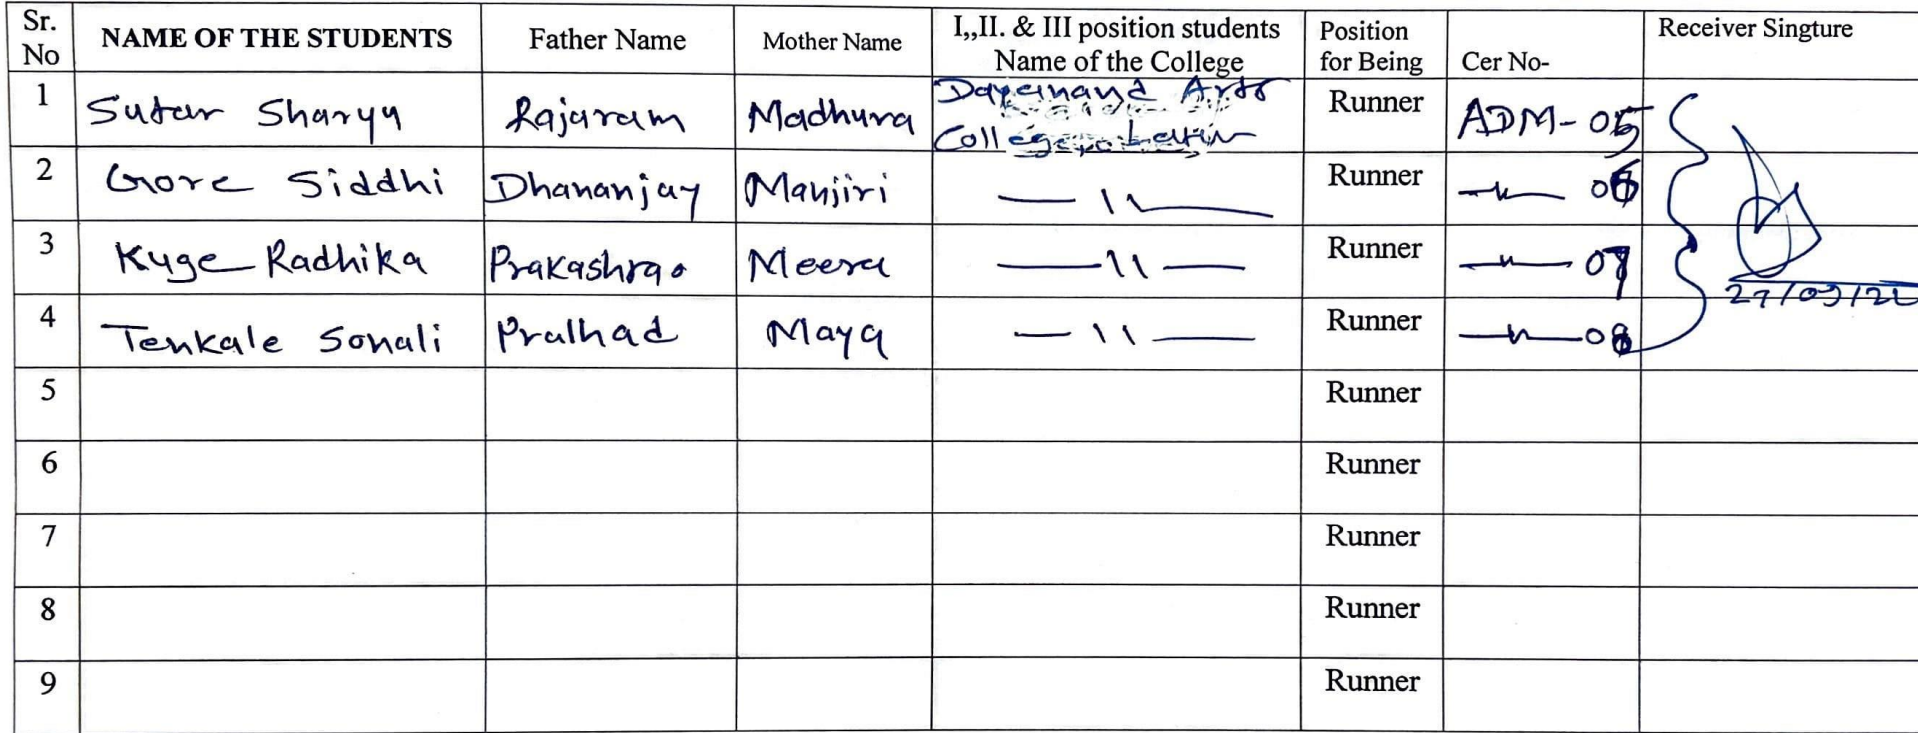 Sr. No NAME OF THE STUDENTS Father Name Mother Name I,,II. & III position students Name of the College Position for Being Cer No- Receiver Singture
1 Sutar Sharyu Rajaram Madhura Dayanand Arts College Latur Runner ADM-05
2 Gore Siddhi Dhananjay Manjiri — 11 — Runner — 11 — 06
3 Kuge Radhika Prakashrao Meera — 11 — Runner — 11 — 07
27/09/22
4 Tenkale Sonali Pralhad Maya — 11 — Runner — 11 — 08
5 Runner
6 Runner
7 Runner
8 Runner
9 Runner